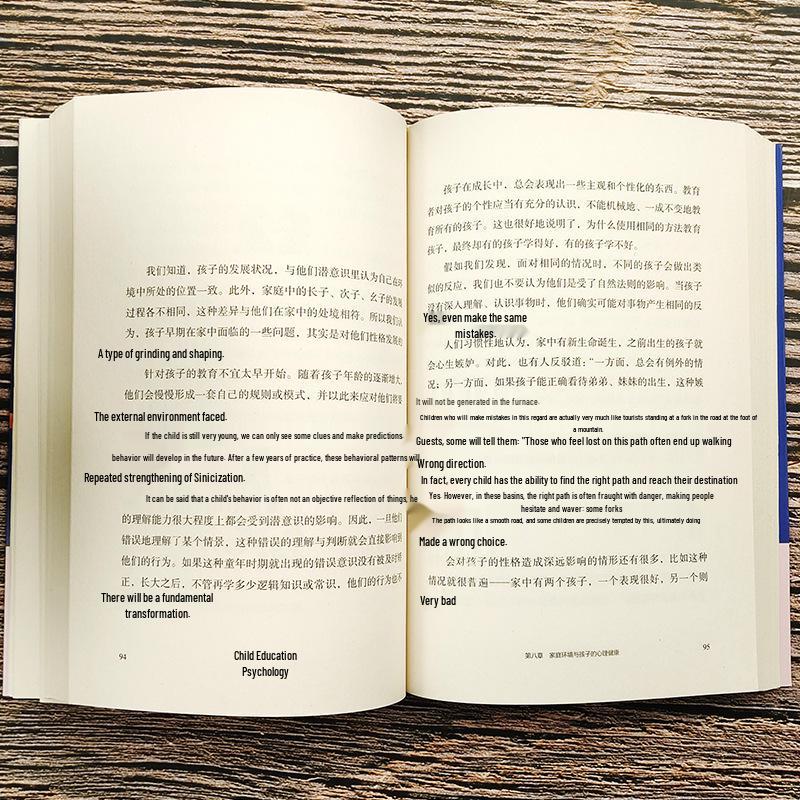 我们知道，孩子的发展状况，与他们潜意识里认为自己在环
境中所处的位置一致。此外，家庭中的长子、次子、幺子的发展
过程各不相同，这种差异与他们在家中的处境相符。所以我们认
为，孩子早期在家中面临的一些问题，其实是对他们性格发展的
A type of grinding and shaping.
针对孩子的教育不宜太早开始。随着孩子年龄的逐渐增大，
他们会慢慢形成一套自己的规则或模式，并以此来应对他们将要
The external environment faced.
If the child is still very young, we can only see some clues and make predictions
behavior will develop in the future. After a few years of practice, these behavioral patterns will
Repeated strengthening of Sinicization.
It can be said that a child's behavior is often not an objective reflection of things, he
的理解能力很大程度上都会受到潜意识的影响。因此，一旦他们
错误地理解了某个情景，这种错误的理解与判断就会直接影响到
他们的行为。如果这种童年时期就出现的错误意识没有被及时矫
正，长大之后，不管再学多少逻辑知识或常识，他们的行为也不
There will be a fundamental
transformation.
94
Child Education
Psychology
孩子在成长中，总会表现出一些主观和个性化的东西。教育
者对孩子的个性应当有充分的认识，不能机械地、一成不变地教
育所有的孩子。这也很好地说明了，为什么使用相同的方法教育
孩子，最终却有的孩子学得好，有的孩子学不好。
假如我们发现，面对相同的情况时，不同的孩子会做出类
似的反应，我们也不要认为他们是受了自然法则的影响。当孩子
没有深入理解、认识事物时，他们确实可能对事物产生相同的反
Yes, even make the same
mistakes.
人们习惯性地认为，家中有新生命诞生，之前出生的孩子就
会心生嫉妒。对此，也有人反驳道：“一方面，总会有例外的情
况；另一方面，如果孩子能正确看待弟弟、妹妹的出生，这种嫉
It will not be generated in the furnace.
Children who will make mistakes in this regard are actually very much like tourists standing at a fork in the road at the foot of
a mountain.
Guests, some will tell them: "Those who feel lost on this path often end up walking
Wrong direction.
In fact, every child has the ability to find the right path and reach their destination
Yes. However, in these basins, the right path is often fraught with danger, making people
hesitate and waver: some forks
The path looks like a smooth road, and some children are precisely tempted by this, ultimately doing
Made a wrong choice.
会对孩子的性格造成深远影响的情形还有很多，比如这种
情况就很普遍——家中有两个孩子，一个表现很好，另一个则
Very bad
第八章 家庭环境与孩子的心理健康
95